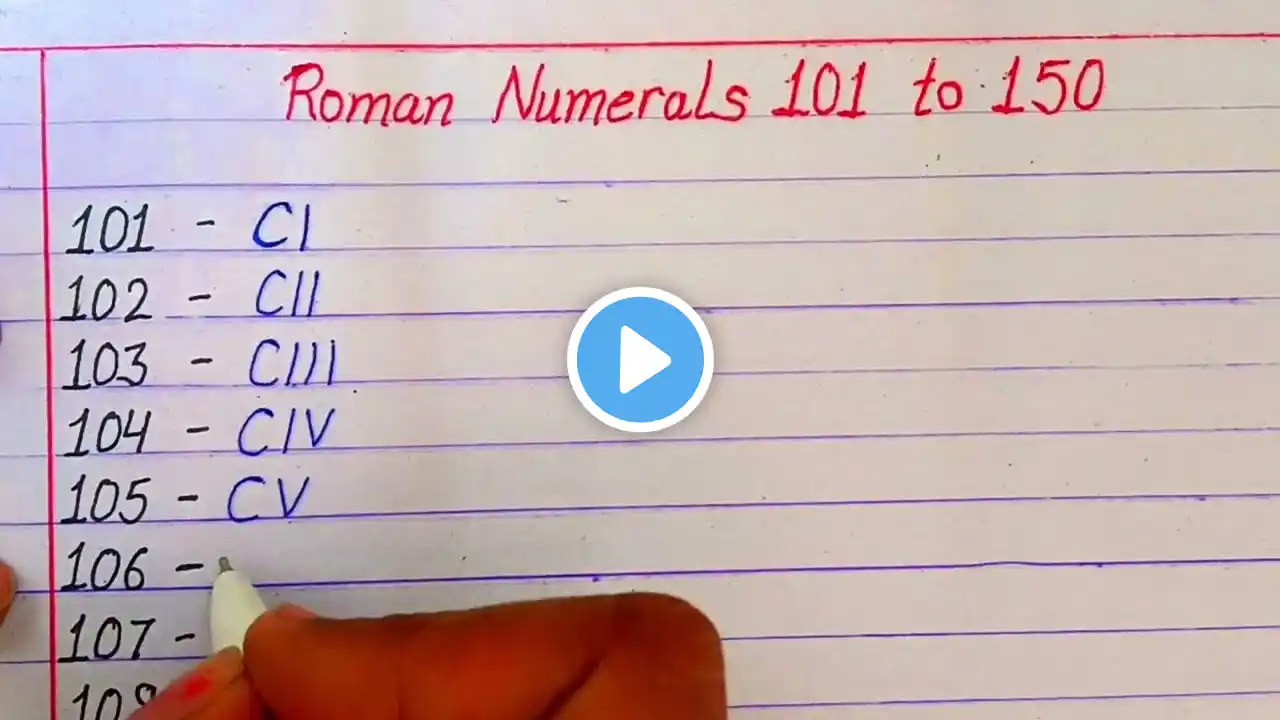 Roman Numerals 101 to 150
101 - CI
102 - CII
103 - CIII
104 - CIV
105 - CV
106 -
107 -